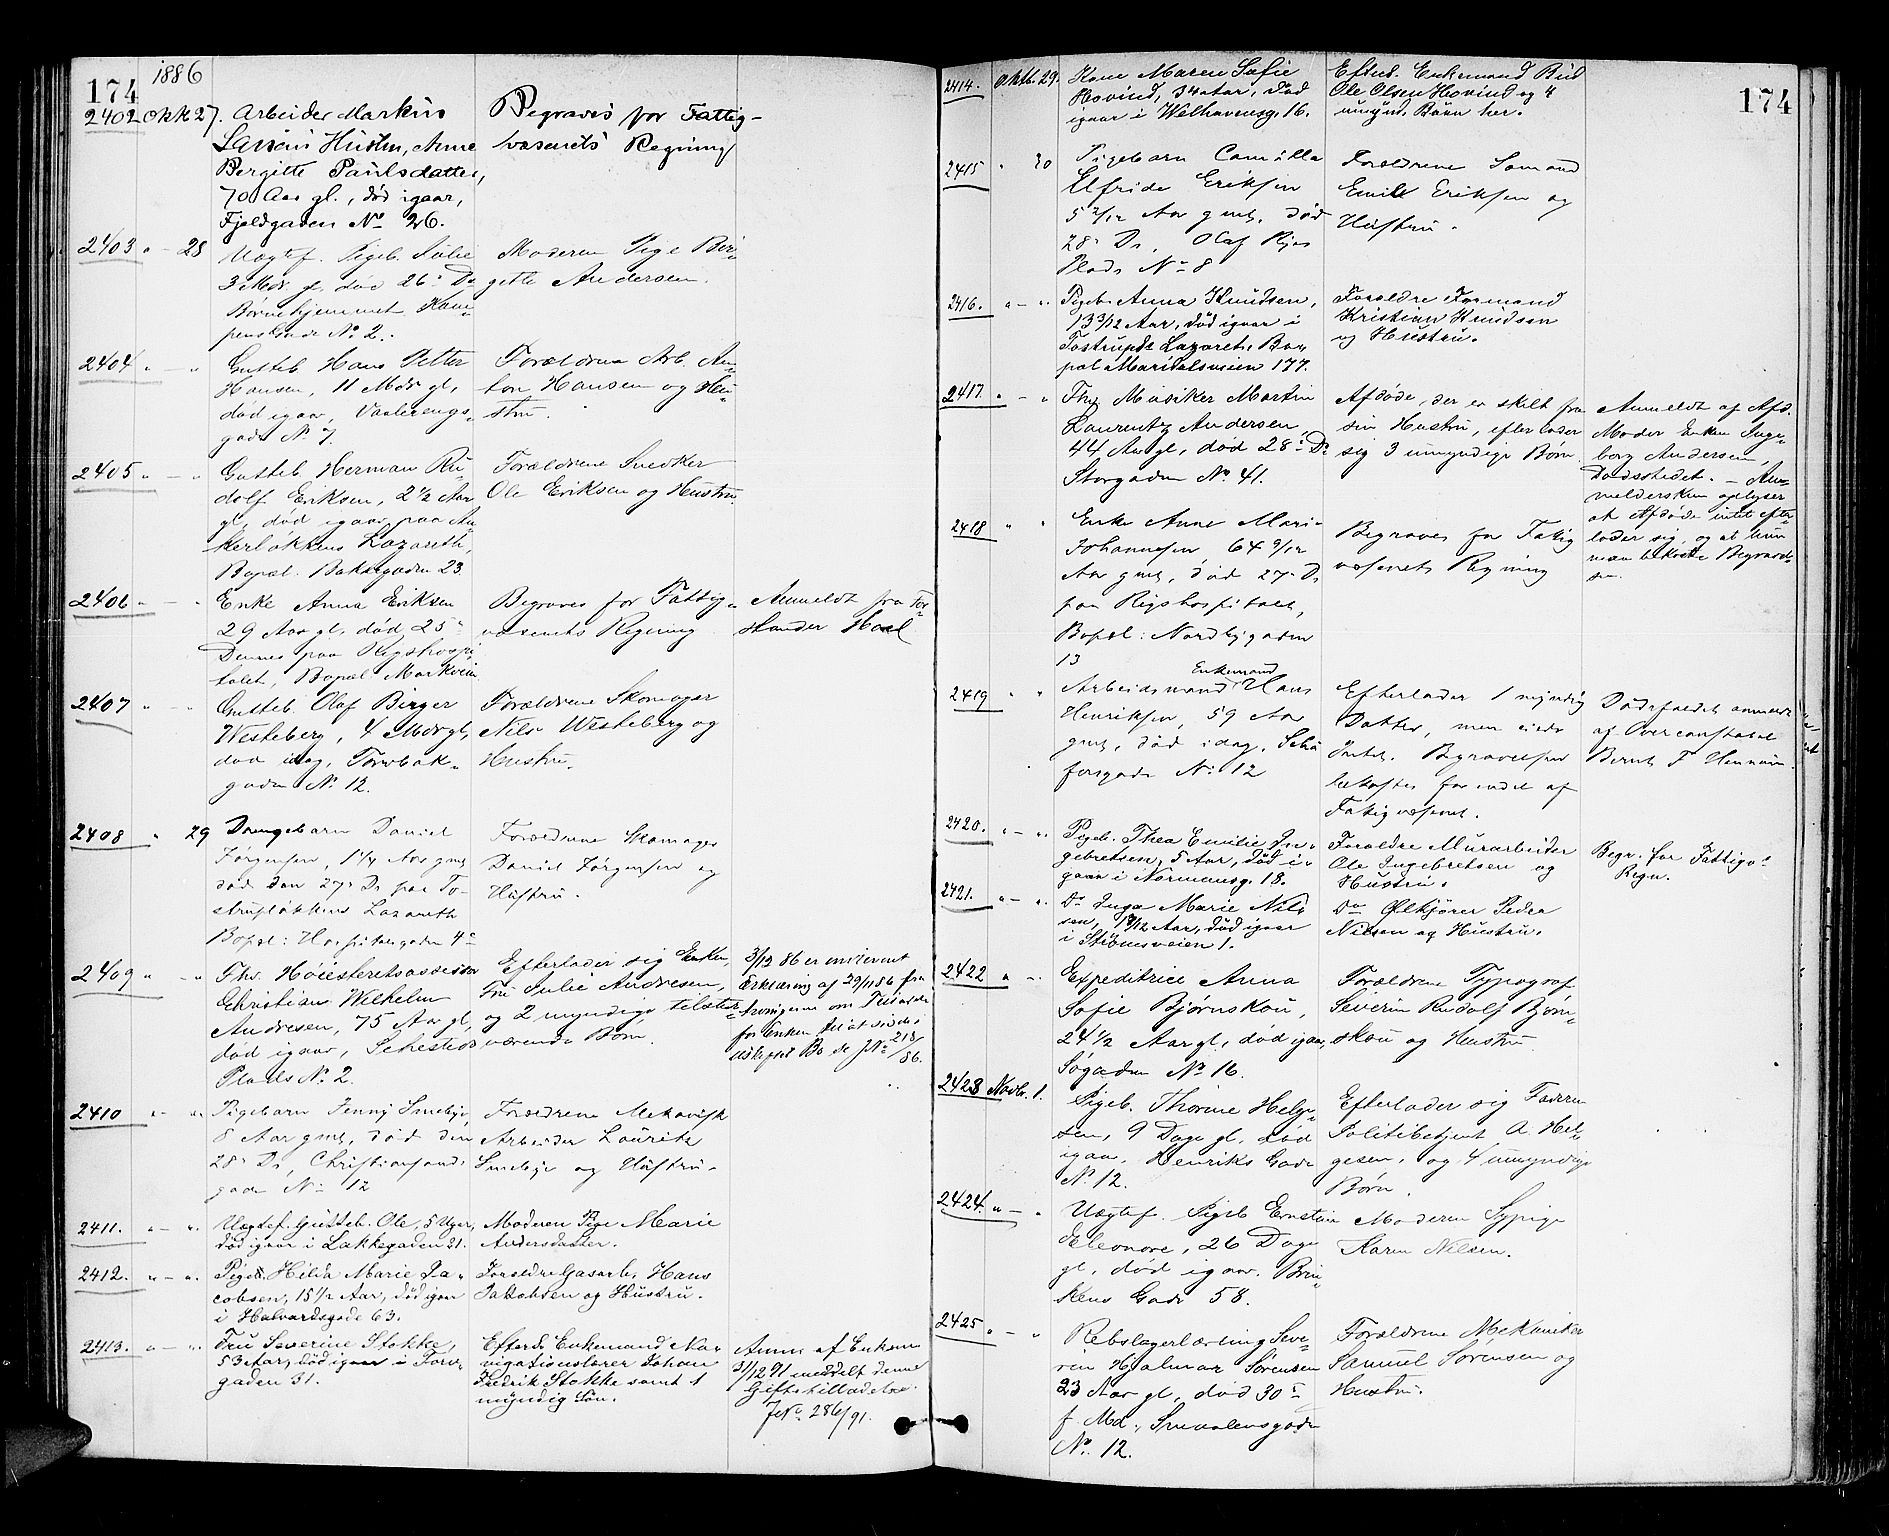 174
1886
2402 Okt. 27. Arbeider Markus
Larsens Hustru, Anne
Bergitte Paulsdatter,
70 Aar gl., død igaar,
Fjeldgaden No 26.
Begraves for Fattig-
væsenets Regning
2403 " - 28 Uægtef. Pigeb. Julie
3 Mdr. gl. død 26 Ds
Børnehjemmet Kam-
pensgade No 2.
Moderen Pige Bir-
gitte Andersen.
2404 " - " Gutteb. Hans Petter
Hansen, 11 Mdr gl.,
død igaar, Vaalerengs-
gade No 7.
Forældrene Arb. An-
ton Hansen og Hu-
stru.
2405 " - " Gutteb. Herman Ru-
dolf Eriksen, 2 1/2 Aar
gl., død igaar paa An-
kerløkkens Lazareth,
Bopæl: Bakkegaden 23.
Forældrene Snedker
Ole Eriksen og Hustru.
2406 " - " Enke Anna Eriksen
29 Aar gl., død 25
Dennes paa Rigshospi-
talet, Bopæl Markveien
Begraves for Fattig-
væsenets Regning
Anmeldt fra For-
stander Hoel
2407 " - " Gutteb. Olaf Birger
Westeberg, 4 Mdr gl.,
død idag, Torvbak-
gaden No 12.
Forældrene Skomager
Nils Westeberg og
Hustru.
2408 " 29 Drengebarn Daniel
Jørgensen, 1 1/4 Aar gml
død den 27 Ds paa To-
strupløkkens Lazareth
Bopæl: Hospitalsgaden 4
Forældrene Skomager
Daniel Jørgensen og
Hustru.
2409 " - " Fhv. Høiesteretsassessor
Christian Wilhelm
Andresen, 75 Aar gl.,
død igaar, Sehesteds
Plads No. 2.
Efterlader sig Enken,
Fru Julie Andresen,
og 2 myndige tilstede-
værende Børn.
3/12 86 er
Erklæring af 29/11 86 fra
om
for Enken til at sidde i
uskiftet Bo, se JNo 213/86.
2410 " - " Pigebarn Jenny Smebye,
8 Aar gml, død den
28 Ds, Christiansands
gade No 12
Forældrene Mekanisk
Arbeider Lauritz
Smebye og Hustru.
2411. " - " Uægtef. Gutteb. Ole, 5 Uger,
død igaar i Lakkegaden 21.
Moderen Pige Marie
Andersdatter.
2412. " - " Pigeb. Hilda Marie Ja-
cobsen, 15 1/2 Aar, død igaar
i Halvardsgade 63.
Forældre Gasarb. Hans
Jakobsen og Hustru.
2413. " - " Fru Severine Stokke,
53 Aar, død igaar i Torv-
gaden 31.
Efterl. Enkemand Na-
vigationslærer Johan
Fredrik Stokke samt 1
myndig Søn.
Anm. af Enkem.
31/12 91 meddelt denne
Giftetilladelse.
JNo. 286/91.
174
2414. Oktb. 29. Kone Maren Sofie
Hovind, 34 Aar, død
igaar i Welhavensg. 16.
Efterl. Enkemand Bud
Ole Olsen Hovind og 4
umynd. Børn her.
2415 " 30 Pigebarn Camilla
Elfride Eriksen
5 2/12 Aar gml, død
28 Ds, Olaf Ryes
Plads No 8
Forældrene Sømand
Emil Eriksen og
Hustru.
2416. " - " Pigeb. Anna Knudsen,
13 3/12 Aar, død igaar i
Tostrupdr. Lazareth, Bo-
pæl Maridalsveien 177.
Forældre Formand
Kristian Knudsen
og Hustru.
2417. " - " Fhv. Musiker Martin
Laurentz Andersen,
44 Aar gl., død 28 Ds
Storgaden No 41.
Afdøde, der er skilt fra
sin Hustru, efterlader
sig 3 umyndige Børn
Anmeldt af Afd.
Moder Enken Inge-
borg Andersen,
Dødsstedet. - An-
meldersken oplyser
at Afdøde intet efter-
lader sig, og at hun
maa bekoste Begravel-
sen.
2418 " " Enke Anne Marie
Johannesen, 64 9/12
Aar gml, død 27 Ds
paa Rigshospitalet,
Bopæl: Nordbygaden
13
Begraves for Fattig
væsenets Regning
2419 " " Arbeidsmand Enkemand Hans
Henriksen, 59 Aar
gml, død idag, Schø
fersgade No 12
Efterlader 1 myndig
Datter, men eier
Intet. Begravelsen
bekostes forendel af
Fattigvæsenet.
Dødsfaldet anmeldt
af Overconstabel
Bernt F. Henning.
2420. " - " Pigeb. Thea Emilie In-
gebretsen, 5 Aar, død i-
gaar i Normansg. 18.
Forældre Murarbeider
Ole Ingebretsen og
Hustru.
Begr. for Fattigv.
Regn.
2421. " - " Do Inga Marie Nil-
sen, 1 9/12 Aar, død igaar
i Strømsveien 1.
Do Ølkjører Peder
Nilsen og Hustru.
2422 " - " Expeditrice Anna
Sofie Bjørnskau,
24 1/2 Aar gl., død igaar,
Søgaden No 16.
Forældrene Typograf
Severin Rudolf Bjørn-
skau og Hustru
2423 Novbr. 1. Pigeb. Thorine Helge-
sen, 9 Dage gl., død
igaar. Henriks Gade
No. 12.
Efterlader sig Faderen
Politibetjent A. Hel-
gesen, og 4 umyndige
Børn.
2424. " - " Uægtef. Pigeb Ernstine
Eleonore, 26 Dage
gl., død igaar. Brin-
kens Gade 58.
Moderen Sypige
Karen Nilsen.
2425 " - " Rebslagerlærling Seve-
rin Hjalmar Sørensen
23 Aar gl., død 30
f. Md., Snevalensgade
No. 12.
Forældrene Mekaniker
Samuel Sørensen og
Hustru.